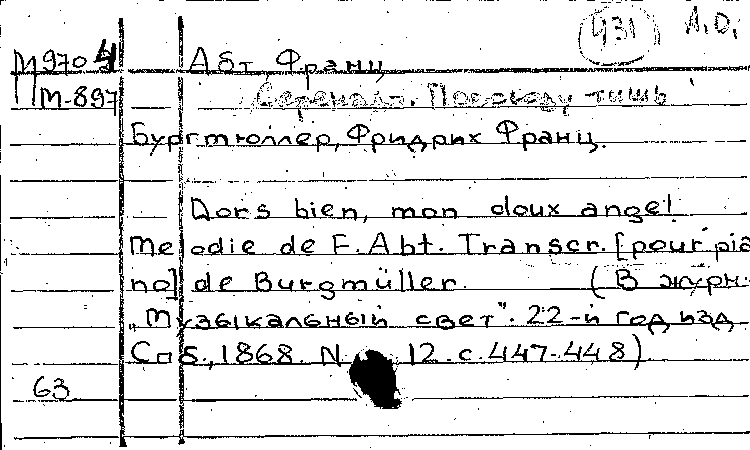 431 А.О.
М970 4 Абт, Франц
М-897 Серенада. Повсюду тишь
Бургмюллер, Фридрих Франц.
Dors bien, mon doux ange!
Melodie de F. Abt. Transcr. [pour pia
no] de Burgmüller. (В журн.
„Музыкальный свет". 22-й год изд.
Спб., 1868. N 12. с. 447-448)
63